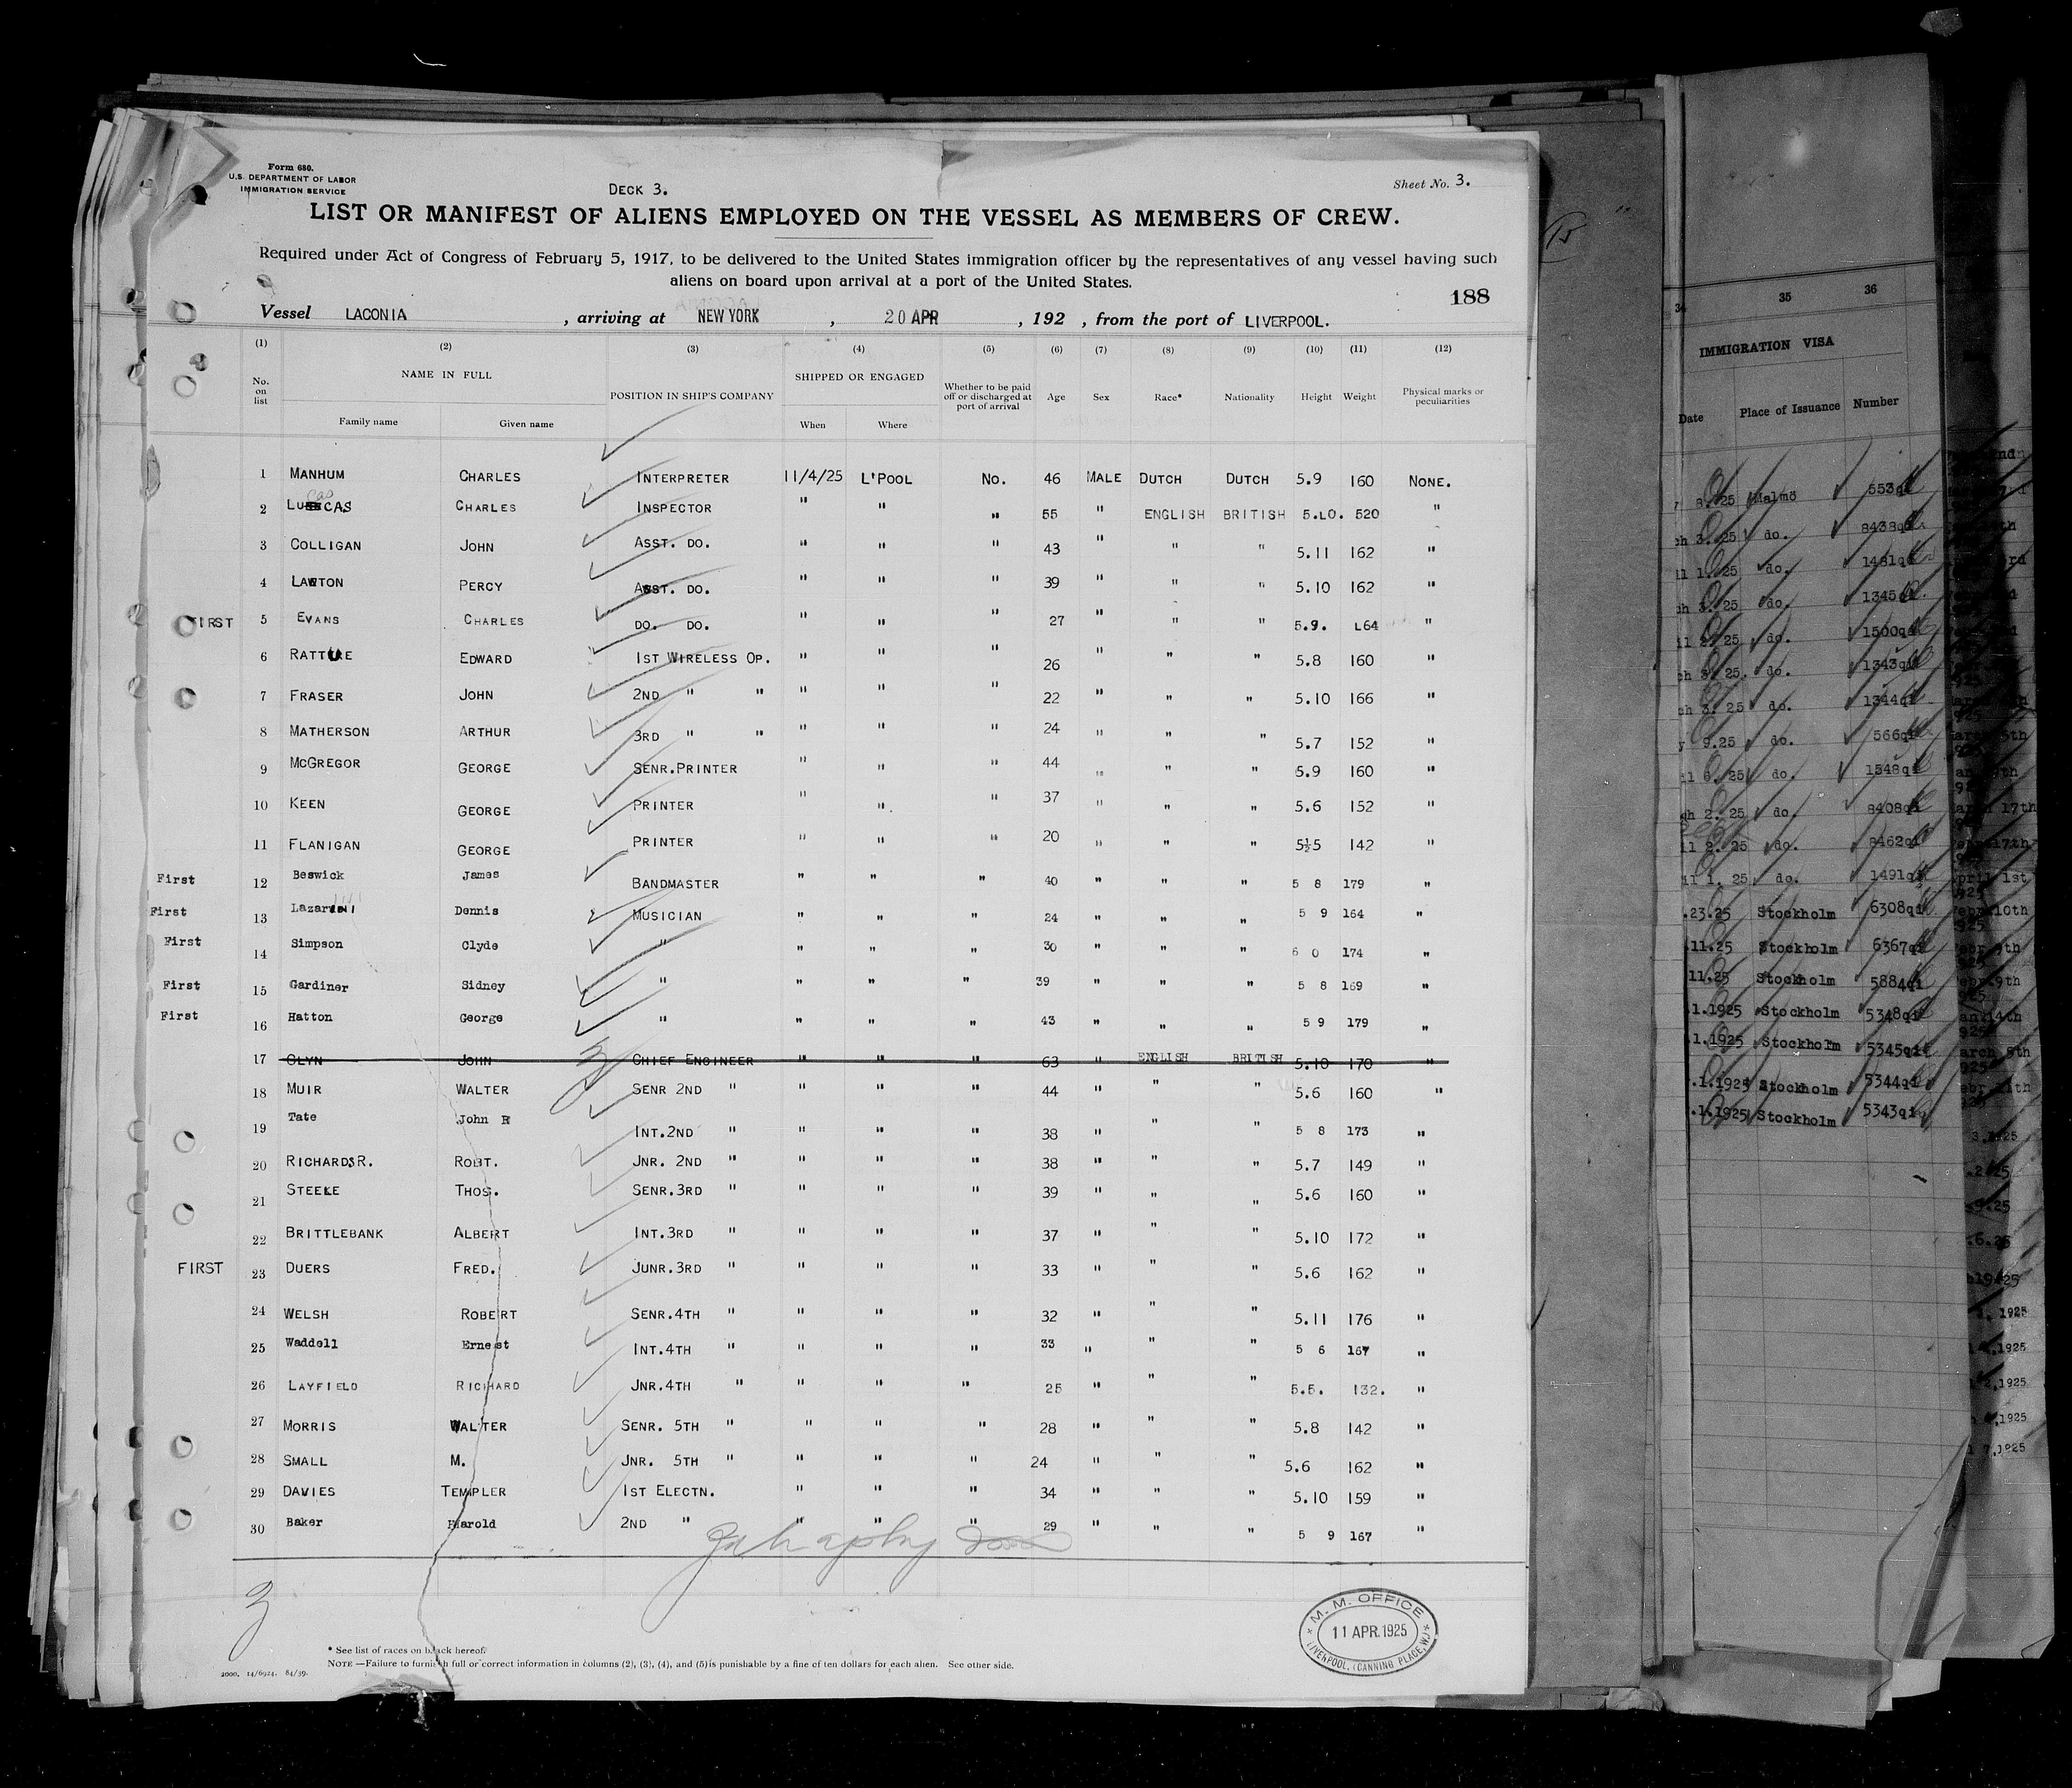 Form 680.
U.S. DEPARTMENT OF LABOR
IMMIGRATION SERVICE
DECK 3.
Sheet No. 3.
LIST OR MANIFEST OF ALIENS EMPLOYED ON THE VESSEL AS MEMBERS OF CREW.
Required under Act of Congress of February 5, 1917, to be delivered to the United States immigration officer by the representatives of any vessel having such
aliens on board upon arrival at a port of the United States.
188
Vessel LACONIA , arriving at NEW YORK , 20 APR , 192 , from the port of LIVERPOOL.
(1) (2) (3) (4) (5) (6) (7) (8) (9) (10) (11) (12)
No. on list NAME IN FULL Family name Given name POSITION IN SHIP'S COMPANY SHIPPED OR ENGAGED When Where Whether to be paid off or discharged at port of arrival Age Sex Race* Nationality Height Weight Physical marks or peculiarities
1 MANHUM CHARLES INTERPRETER 11/4/25 L'POOL No. 46 MALE DUTCH DUTCH 5.9 160 NONE.
2 LUCAS CHARLES INSPECTOR " " " 55 " ENGLISH BRITISH 5.LO. 520 "
3 COLLIGAN JOHN ASST. DO. " " " 43 " " " 5.11 162 "
4 LAWTON PERCY ASST. DO. " " " 39 " " " 5.10 162 "
FIRST 5 EVANS CHARLES DO. DO. " " " 27 " " " 5.9. L64 "
6 RATTUE EDWARD 1ST WIRELESS OP. " " " 26 " " " 5.8 160 "
7 FRASER JOHN 2ND " " " " " 22 " " " 5.10 166 "
8 MATHERSON ARTHUR 3RD " " " " " 24 " " " 5.7 152 "
9 McGREGOR GEORGE SENR.PRINTER " " " 44 " " " 5.9 160 "
10 KEEN GEORGE PRINTER " " " 37 " " " 5.6 152 "
11 FLANIGAN GEORGE PRINTER " " " 20 " " " 5½5 142 "
First 12 Beswick James BANDMASTER " " " 40 " " " 5 8 179 "
First 13 Dennis MUSICIAN " " " 24 " " " 5 9 164 "
First 14 Simpson Clyde " " " " 30 " " " 6 0 174 "
First 15 Gardiner Sidney " " " " 39 " " " 5 8 169 "
First 16 Hatton George " " " " 43 " " " 5 9 179 "
17 GLYN JOHN CHIEF ENGINEER " " " 63 " ENGLISH BRITISH 5.10 170 "
18 MUIR WALTER SENR 2ND " " " " 44 " " " 5.6 160 "
19 Tate John R INT.2ND " " " " 38 " " " 5 8 173 "
20 RICHARDS R. ROBT. JNR. 2ND " " " " 38 " " " 5.7 149 "
21 STEELE THOS. SENR.3RD " " " " 39 " " " 5.6 160 "
22 BRITTLEBANK ALBERT INT.3RD " " " " 37 " " " 5.10 172 "
FIRST 23 DUERS FRED. JUNR.3RD " " " " 33 " " " 5.6 162 "
24 WELSH ROBERT SENR.4TH " " " " 32 " " " 5.11 176 "
25 Waddell Ernest INT.4TH " " " " 33 " " " 5 6 167 "
26 LAYFIELD RICHARD JNR.4TH " " " " 25 " " " 5.5. 132. "
27 MORRIS WALTER SENR. 5TH " " " " 28 " " " 5.8 142 "
28 SMALL M. JNR. 5TH " " " " 24 " " " 5.6 162 "
29 DAVIES TEMPLER 1ST ELECTN. " " " 34 " " " 5.10 159 "
30 Baker Harold 2ND " " " " 29 " " " 5 9 167 "
M. M. OFFICE
11 APR.1925
LIVERPOOL, (CANNING PLACE, W)
* See list of races on back hereof.
NOTE —Failure to furnish full or correct information in columns (2), (3), (4), and (5) is punishable by a fine of ten dollars for each alien. See other side.
2000, 14/6924. 84/39.
34 35 36
IMMIGRATION VISA
Date Place of Issuance Number
8.25 Malmö 553qi
3.25 do. 8438qi
1.25 do. 1481qi
25 do. 1345qi
25 do. 1500qi
25. do. 1343qi
3.25 do. 1344qi
9.25 do. 566qi
6.25 do. 1548qi
2.25 do. 8408qi
2.25 do. 8462qi
1.25 do. 1491qi
.23.25 Stockholm 6308qi
.11.25 Stockholm 6367qi
11.25 Stockholm 5884qi
.1.1925 Stockholm 5348qi
.1.1925 Stockholm 5345qi
.1.1925 Stockholm 5344qi
.1.1925 Stockholm 5343qi